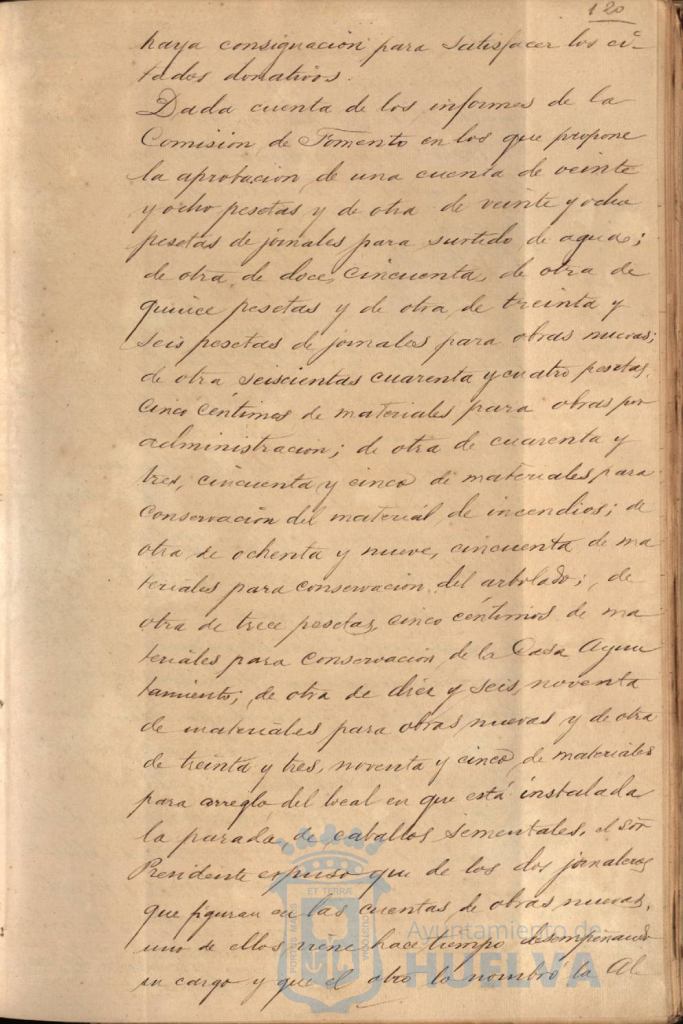 120
haya consignación para satisfacer los ci-
tados donativos.
Dada cuenta de los informes de la
Comisión de Fomento en los que propone
la aprobacion de una cuenta de veinte
y ocho pesetas y de otra de veinte y ocho
pesetas de jornales para surtido de agua;
de otra de doce, cincuenta, de otra de
quince pesetas y de otra de treinta y
seis pesetas de jornales para obras nuevas;
de otra seiscientas cuarenta y cuatro pesetas,
cinco céntimos de materiales para obras por
administracion; de otra de cuarenta y
tres, cincuenta y cinco de materiales para
conservación del material de incendios; de
otra de ochenta y nueve, cincuenta de ma
teriales para conservacion del arbolado; de
otra de trece pesetas, cinco céntimos de ma
teriales para conservación de la Casa Ayun
tamiento; de otra de diez y seis, noventa
de materiales para obras nuevas y de otra
de treinta y tres, noventa y cinco, de materiales
para arreglo del local en que está instalada
la parada de caballos sementales, el Sör
Presidente expuso que de los dos jornaleros
que figuran en las cuentas de obras nuevas,
uno de ellos viene hace tiempo desempeñando
su cargo y que el otro lo nombró la Al
ET TERRA
Ayuntamiento de
HUELVA